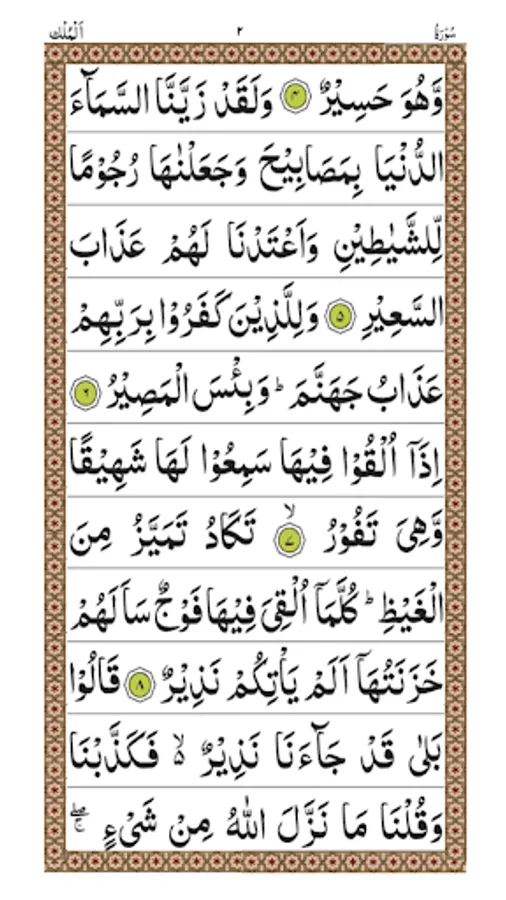 سُوْرَةُ ٢ اَلْمُلْك
وَّهُوَ حَسِيْرٌ ۴ وَلَقَدْ زَيَّنَّا السَّمَآءَ
الدُّنْيَا بِمَصَابِيْحَ وَجَعَلْنٰهَا رُجُوْمًا
لِّلشَّيٰطِيْنِ وَاَعْتَدْنَا لَهُمْ عَذَابَ
السَّعِيْرِ ۵ وَلِلَّذِيْنَ كَفَرُوْا بِرَبِّهِمْ
عَذَابُ جَهَنَّمَ ؕ وَبِئْسَ الْمَصِيْرُ ۶
اِذَآ اُلْقُوْا فِيْهَا سَمِعُوْا لَهَا شَهِيْقًا
وَّهِىَ تَفُوْرُ ۙ ۷ تَكَادُ تَمَيَّزُ مِنَ
الْغَيْظِ ؕ كُلَّمَآ اُلْقِىَ فِيْهَا فَوْجٌ سَاَلَهُمْ
خَزَنَتُهَآ اَلَمْ يَاْتِكُمْ نَذِيْرٌ ۸ قَالُوْا
بَلٰى قَدْ جَآءَنَا نَذِيْرٌ ۙ۬ فَكَذَّبْنَا
وَقُلْنَا مَا نَزَّلَ اللّٰهُ مِنْ شَىْءٍ ۖۚ